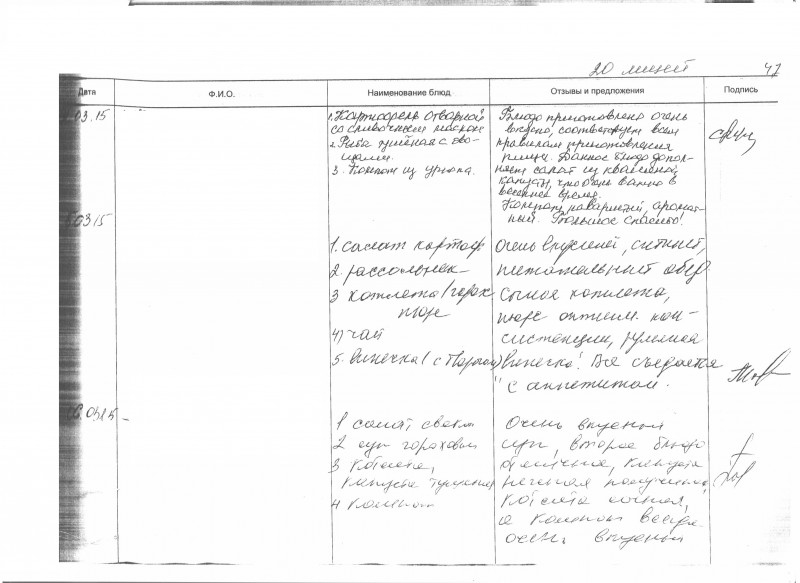 20 лицей 47
Дата Ф.И.О. Наименование блюд Отзывы и предложения Подпись
03.15
1. Картофель отварной
со сливочным маслом
2. Рыба тушёная с ово-
щами.
3. Компот из урюка.
Блюдо приготовлено очень
вкусно, соответствует всем
правилам приготовления
пищи. Данное блюдо допол-
няет салат из квашеной
капусты, что очень важно в
весеннее время.
Компот наваристый, аромат-
ный. Большое спасибо!
03 15
1. салат картоф
2. рассольник
3 котлета/горох
пюре
4) чай
5. Ватрушка
Очень вкусный, сытный,
питательный обед.
Сочная котлета,
пюре оптим. кон-
систенции, румяная
Всё съедается
с аппетитом.
03.15
1 салат, свекла
2 суп гороховый
3 котлета,
капуста тушеная
4 компот
Очень вкусный
суп, второе блюдо
отличное, капуста
нежная получилась,
котлета сочная,
а компот всегда
очень вкусный